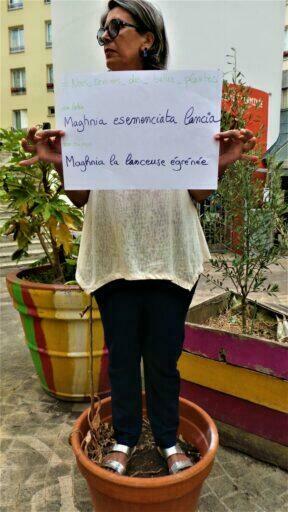 # Nous sommes de belles plantes
Maghnia esemenciata lancia
Maghnia la lanceuse égrénée